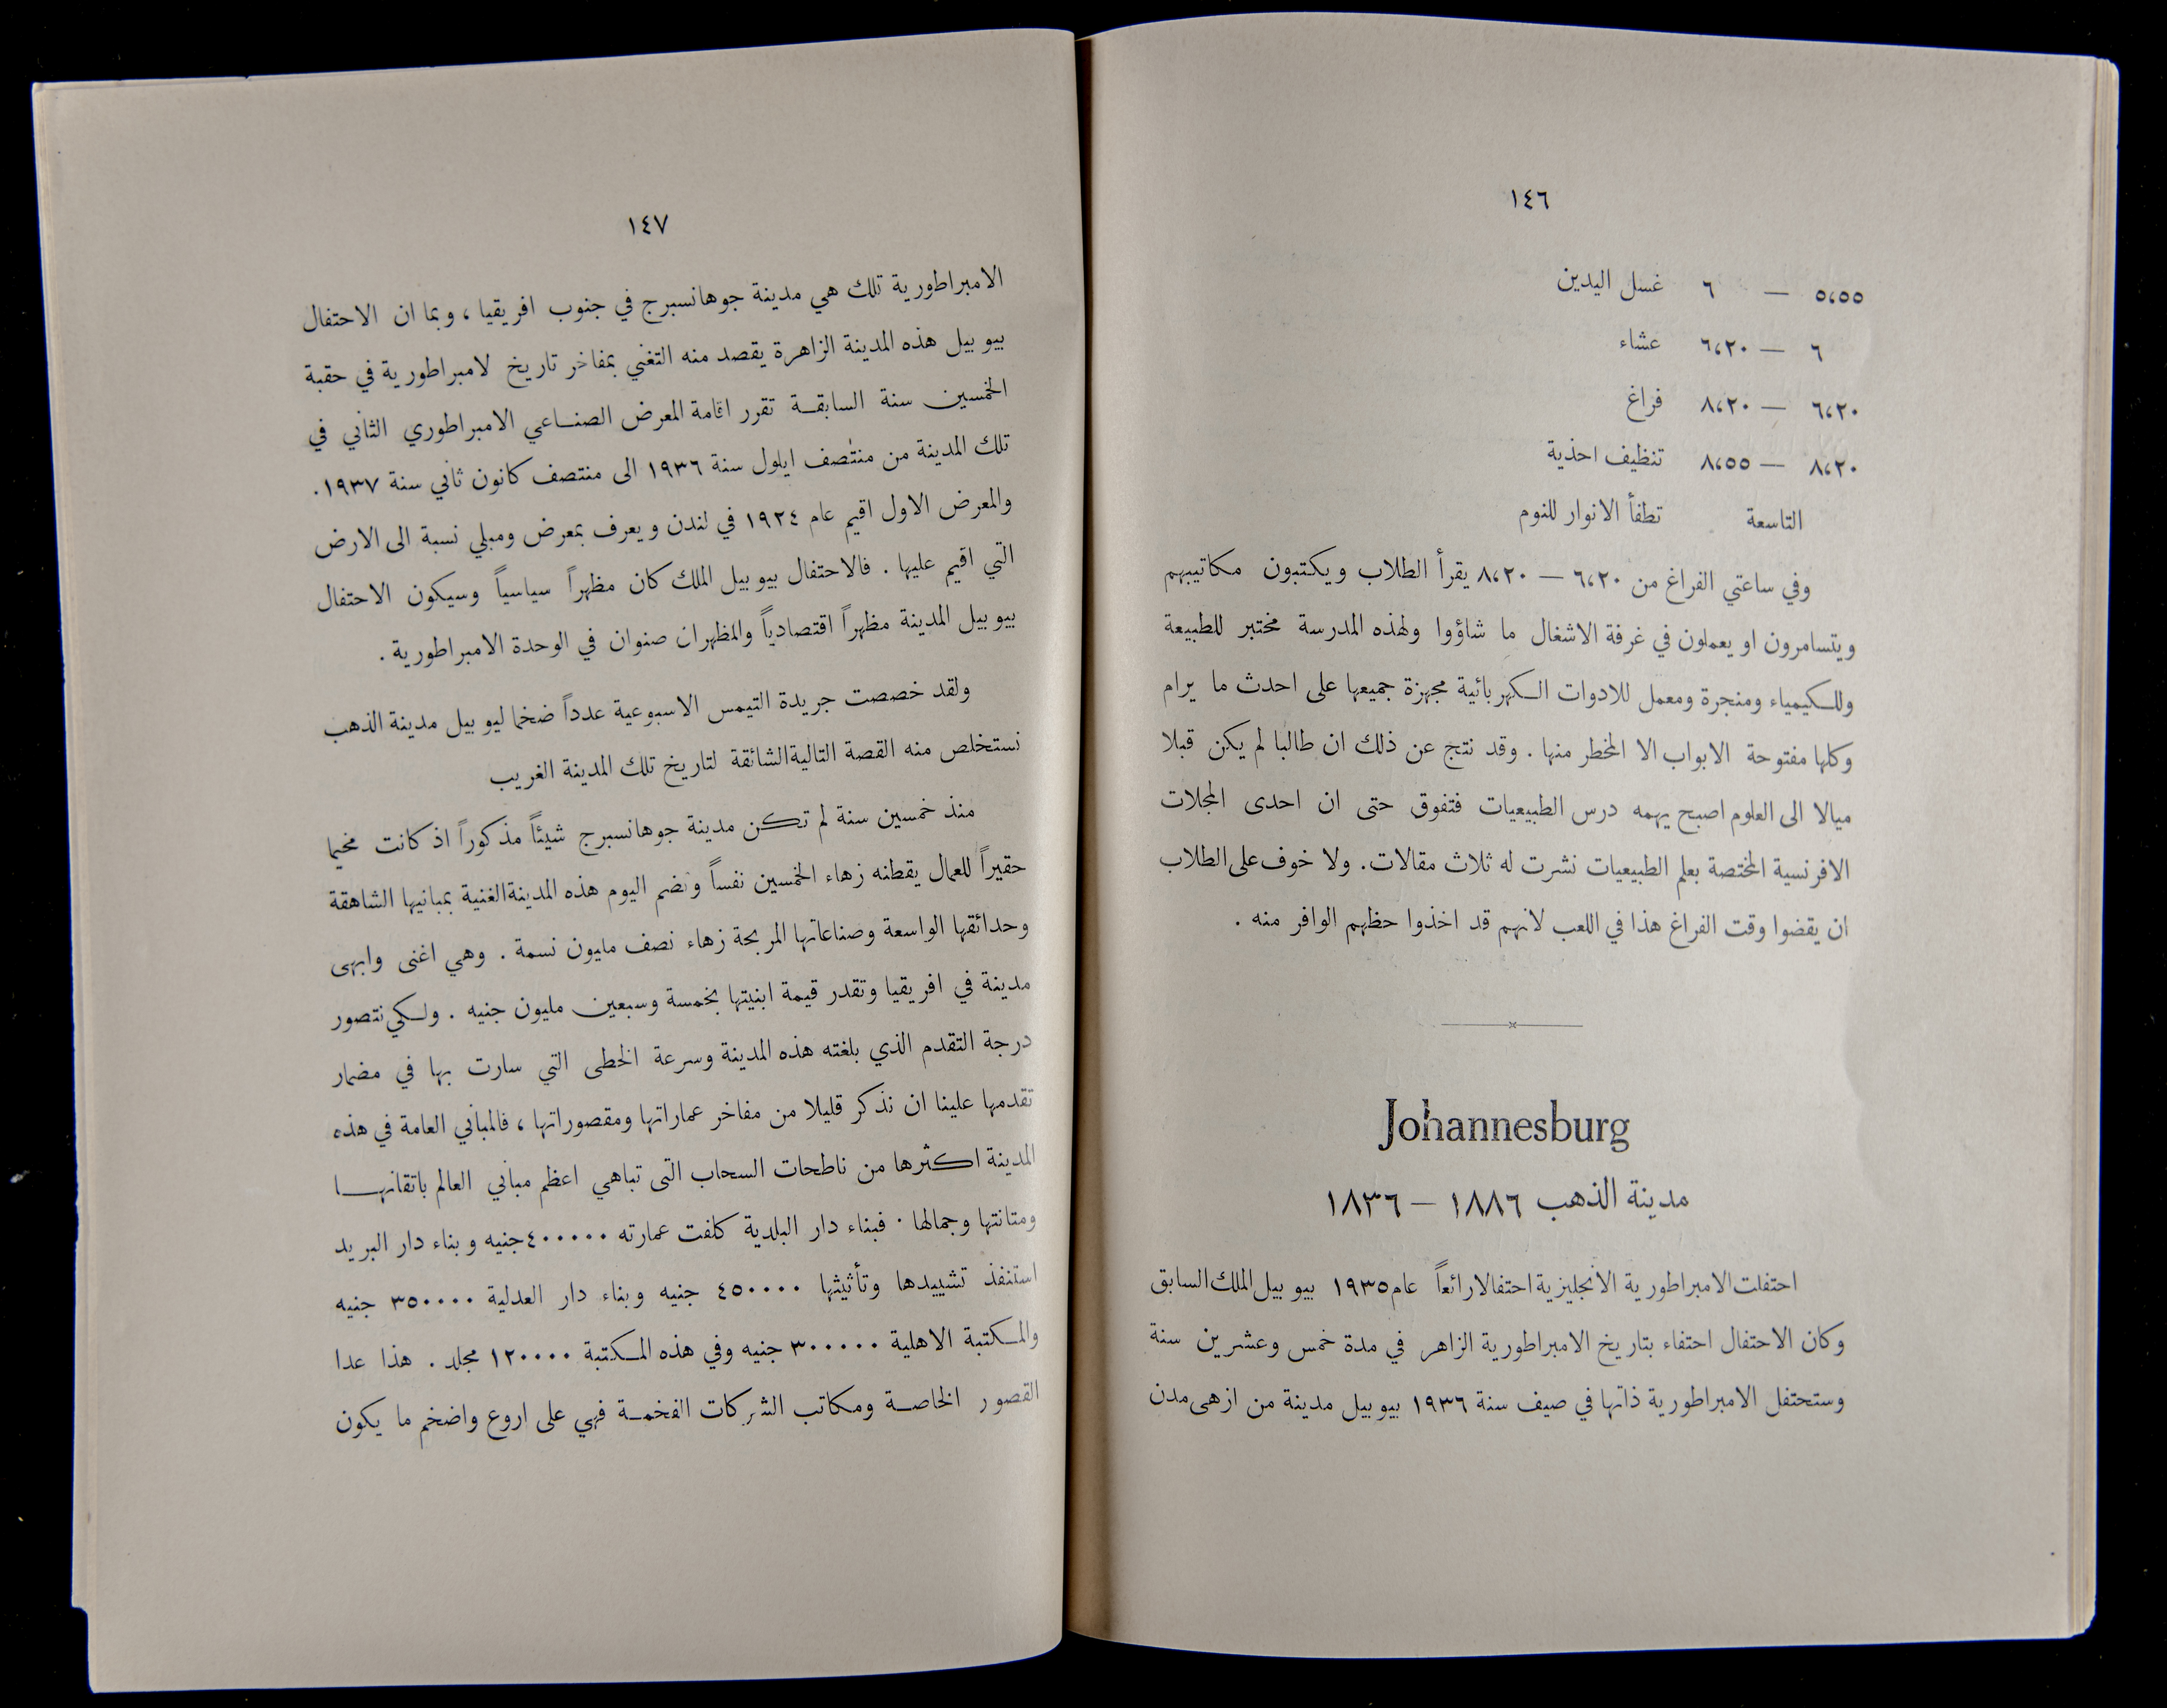 ١٤٦
٥،٥٥ — ٦ غسل اليدين
٦ — ٦،٢٠ عشاء
٦،٢٠ — ٨،٢٠ فراغ
٨،٢٠ — ٨،٥٥ تنظيف احذية
التاسعة تطفأ الانوار للنوم
وفي ساعتي الفراغ من ٦،٢٠ — ٨،٢٠ يقرأ الطلاب ويكتبون مكاتيبهم
ويتسامرون او يعملون في غرفة الاشغال ما شاؤوا ولهذه المدرسة مختبر للطبيعة
وللكيمياء ومنجرة ومعمل للادوات الكهربائية مجهزة جميعها على احدث ما يرام
وكلها مفتوحة الابواب الا المخطر منها . وقد نتج عن ذلك ان طالبا لم يكن قبلا
ميالا الى العلوم اصبح يهمه درس الطبيعيات فتفوق حتى ان احدى المجلات
الافرنسية المختصة بعلم الطبيعيات نشرت له ثلاث مقالات. ولا خوف على الطلاب
ان يقضوا وقت الفراغ هذا في اللعب لانهم قد اخذوا حظهم الوافر منه .
Johannesburg
مدينة الذهب ١٨٨٦ – ١٨٣٦
احتفلت الامبراطورية الانجليزية احتفالا رائعاً عام ١٩٣٥ بيوبيل الملك السابق
وكان الاحتفال احتفاء بتاريخ الامبراطورية الزاهر في مدة خمس وعشرين سنة
وستحتفل الامبراطورية ذاتها في صيف سنة ١٩٣٦ بيوبيل مدينة من ازهى مدن
١٤٧
الامبراطورية تلك هي مدينة جوهانسبرج في جنوب افريقيا ، وبما ان الاحتفال
بيوبيل هذه المدينة الزاهرة يقصد منه التغني بمفاخر تاريخ لامبراطورية في حقبة
الخمسين سنة السابقة تقرر اقامة المعرض الصناعي الامبراطوري الثاني في
تلك المدينة من منتصف ايلول سنة ١٩٣٦ الى منتصف كانون ثاني سنة ١٩٣٧.
والمعرض الاول اقيم عام ١٩٢٤ في لندن ويعرف بمعرض ومبلي نسبة الى الارض
التي اقيم عليها . فالاحتفال بيوبيل الملك كان مظهراً سياسياً وسيكون الاحتفال
بيوبيل المدينة مظهراً اقتصادياً والمظهران صنوان في الوحدة الامبراطورية .
ولقد خصصت جريدة التيمس الاسبوعية عدداً ضخما ليوبيل مدينة الذهب
نستخلص منه القصة التالية الشائقة لتاريخ تلك المدينة الغريب
منذ خمسين سنة لم تكن مدينة جوهانسبرج شيئاً مذكوراً اذ كانت مخيما
حقيراً للعمال يقطنه زهاء الخمسين نفساً وتضم اليوم هذه المدينة الغنية بمبانيها الشاهقة
وحدائقها الواسعة وصناعاتها المربحة زهاء نصف مليون نسمة . وهي اغنى وابهى
مدينة في افريقيا وتقدر قيمة ابنيتها بخمسة وسبعين مليون جنيه . ولكي نتصور
درجة التقدم الذي بلغته هذه المدينة وسرعة الخطى التي سارت بها في مضمار
تقدمها علينا ان نذكر قليلا من مفاخر عماراتها ومقصوراتها ، فالمباني العامة في هذه
المدينة اكثرها من ناطحات السحاب التى تباهي اعظم مباني العالم باتقانها
ومتانتها وجمالها . فبناء دار البلدية كلفت عمارته ٤٠٠٠٠٠ جنيه وبناء دار البريد
استنفذ تشييدها وتأثيثها ٤٥٠٠٠٠ جنيه وبناء دار العدلية ٣٥٠٠٠٠ جنيه
والمكتبة الاهلية ٣٠٠٠٠٠ جنيه وفي هذه المكتبة ١٢٠٠٠٠ مجلد . هذا عدا
القصور الخاصة ومكاتب الشركات الفخمة فهي على اروع واضخم ما يكون